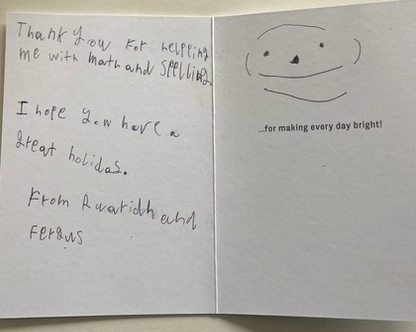 Thank you for helping
me with math and spelling
I hope you have a
great holidas.
From Ruaridh and
Fergus
...for making every day bright!